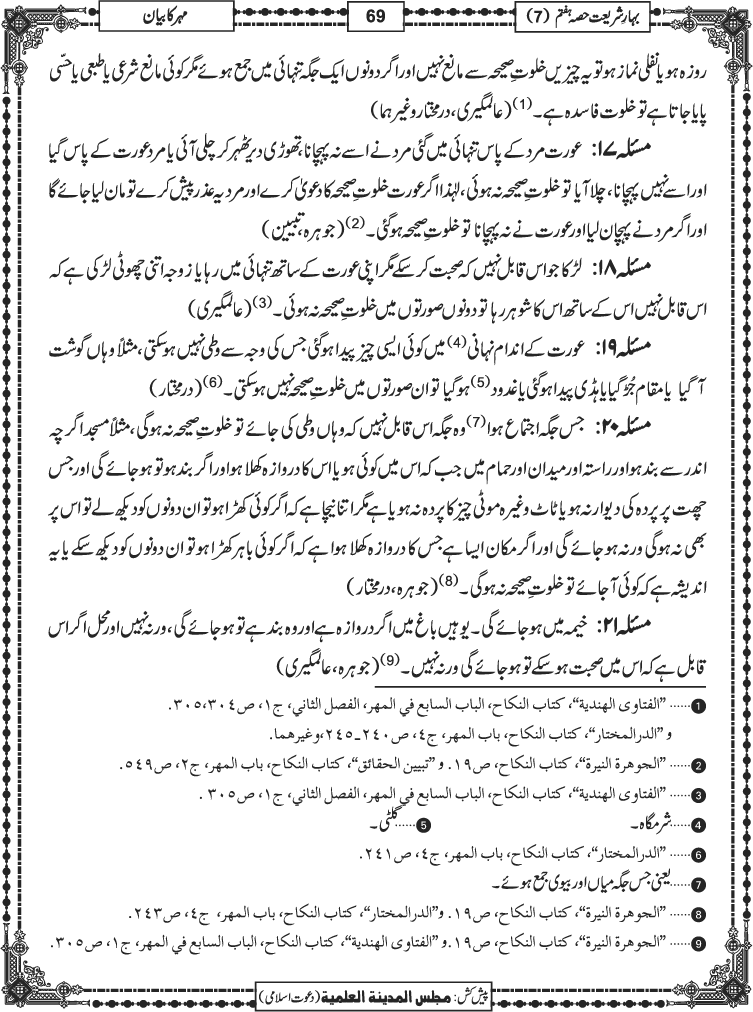 بہارِ شریعت حصہ ہفتم (7)
69
مہر کا بیان
روزہ ہو یا نفلی نماز ہو تو یہ چیزیں خلوتِ صحیحہ سے مانع نہیں اور اگر دونوں ایک جگہ تنہائی میں جمع ہوئے مگر کوئی مانع شرعی یا طبعی یا حسّی
پایا جاتا ہے تو خلوت فاسدہ ہے۔(1) (عالمگیری، درمختار وغیرہما)
مسئلہ ۱۷: عورت مرد کے پاس تنہائی میں گئی مرد نے اسے نہ پہچانا، تھوڑی دیر ٹھہر کر چلی آئی یا مرد عورت کے پاس گیا
اور اسے نہیں پہچانا، چلا آیا تو خلوتِ صحیحہ نہ ہوئی، لہٰذا اگر عورت خلوتِ صحیحہ کا دعویٰ کرے اور مرد یہ عذر پیش کرے تو مان لیا جائے گا
اور اگر مرد نے پہچان لیا اور عورت نے نہ پہچانا تو خلوتِ صحیحہ ہوگئی۔(2) (جوہرہ، تبیین)
مسئلہ ۱۸: لڑکا جو اس قابل نہیں کہ صحبت کرسکے مگر اپنی عورت کے ساتھ تنہائی میں رہا یا زوجہ اتنی چھوٹی لڑکی ہے کہ
اس قابل نہیں اس کے ساتھ اس کا شوہر رہا تو دونوں صورتوں میں خلوتِ صحیحہ نہ ہوئی۔(3) (عالمگیری)
مسئلہ ۱۹: عورت کے اندام نہانی(4) میں کوئی ایسی چیز پیدا ہوگئی جس کی وجہ سے وطی نہیں ہوسکتی، مثلاً وہاں گوشت
آگیا یا مقام جُڑ گیا یا ہڈی پیدا ہوگئی یا غدود(5) ہوگیا تو ان صورتوں میں خلوتِ صحیحہ نہیں ہوسکتی۔(6) (درمختار)
مسئلہ ۲۰: جس جگہ اجتماع ہوا(7) وہ جگہ اس قابل نہیں کہ وہاں وطی کی جائے تو خلوتِ صحیحہ نہ ہوگی، مثلاً مسجد اگرچہ
اندر سے بند ہو اور راستہ اور میدان اور حمام میں جب کہ اس میں کوئی ہو یا اس کا دروازہ کھلا ہو اور اگر بند ہو تو ہو جائے گی اور جس
چھت پر پردہ کی دیوار نہ ہو یا ٹاٹ وغیرہ موٹی چیز کا پردہ نہ ہو یا ہے مگر اتنا نیچا ہے کہ اگر کوئی کھڑا ہو تو ان دونوں کو دیکھ لے تو اس پر
بھی نہ ہوگی ورنہ ہو جائے گی اور اگر مکان ایسا ہے جس کا دروازہ کھلا ہوا ہے کہ اگر کوئی باہر کھڑا ہو تو ان دونوں کو دیکھ سکے یا یہ
اندیشہ ہے کہ کوئی آجائے تو خلوتِ صحیحہ نہ ہوگی۔(8) (جوہرہ، درمختار)
مسئلہ ۲۱: خیمہ میں ہو جائے گی۔ یوہیں باغ میں اگر دروازہ ہے اور وہ بند ہے تو ہو جائے گی، ورنہ نہیں اور محل اگر اس
قابل ہے کہ اس میں صحبت ہوسکے تو ہو جائے گی ورنہ نہیں۔(9) (جوہرہ، عالمگیری)
1 ...... ”الفتاوى الهندية“، كتاب النكاح، الباب السابع في المهر، الفصل الثاني، ج١، ص٣٠٤، ٣٠٥.
و ”الدرالمختار“، كتاب النكاح، باب المهر، ج٤، ص٢٤٠ـ٢٤٥، وغيرهما.
2 ...... ”الجوهرة النيرة“، كتاب النكاح، ص١٩. و ”تبيين الحقائق“، كتاب النكاح، باب المهر، ج٢، ص٥٤٩.
3 ...... ”الفتاوى الهندية“، كتاب النكاح، الباب السابع في المهر، الفصل الثاني، ج١، ص٣٠٥ .
4 ......شرمگاہ۔ 5 ......گلٹی۔
6 ...... ”الدرالمختار“، كتاب النكاح، باب المهر، ج٤، ص٢٤١.
7 ......یعنی جس جگہ میاں اور بیوی جمع ہوئے۔
8 ...... ”الجوهرة النيرة“، كتاب النكاح، ص١٩. و”الدرالمختار“، كتاب النكاح، باب المهر، ج٤، ص٢٤٣.
9 ...... ”الجوهرة النيرة“، كتاب النكاح، ص١٩. و ”الفتاوى الهندية“، كتاب النكاح، الباب السابع في المهر، ج١، ص٣٠٥.
پیش کش: مجلس المدينة العلمية (دعوتِ اسلامی)